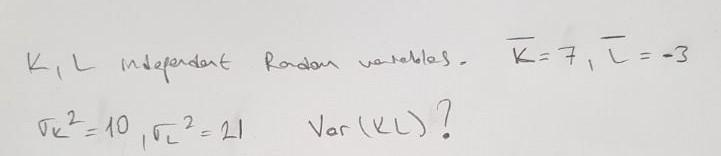 K, L independent Random variables. K̅ = 7, L̅ = -3
σK² = 10, σL² = 21 Var(KL)?